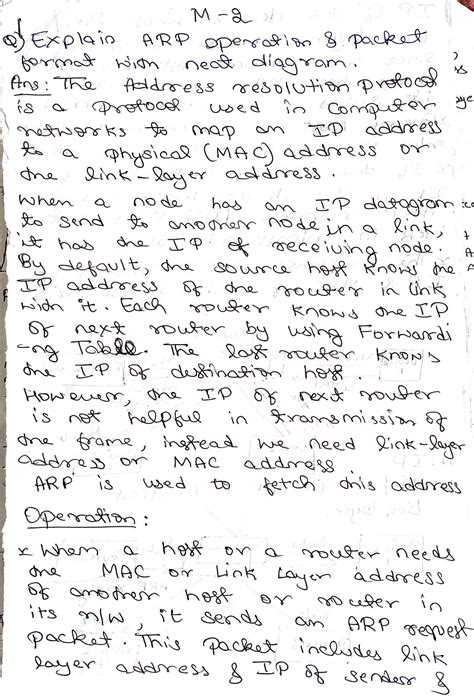 M-2
Q) Explain ARP operation & packet
format with neat diagram.
Ans: The Address resolution protocol
is a protocol used in computer
networks to map an IP address
to a physical (MAC) address or
the link-layer address.
When a node has an IP datagram
to send to another node in a link,
it has the IP of receiving node.
By default, the source host knows the
IP address of the router in link
with it. Each router knows the IP
of next router by using Forwardi
-ng Table. The last router knows
the IP of destination host.
However, the IP of next router
is not helpful in transmission of
the frame, instead we need link-layer
address or MAC address
ARP is used to fetch this address
Operation:
x When a host or a router needs
the MAC or Link Layer address
of another host or router in
its n/w, it sends an ARP request
packet. This packet includes link
layer address & IP of sender &